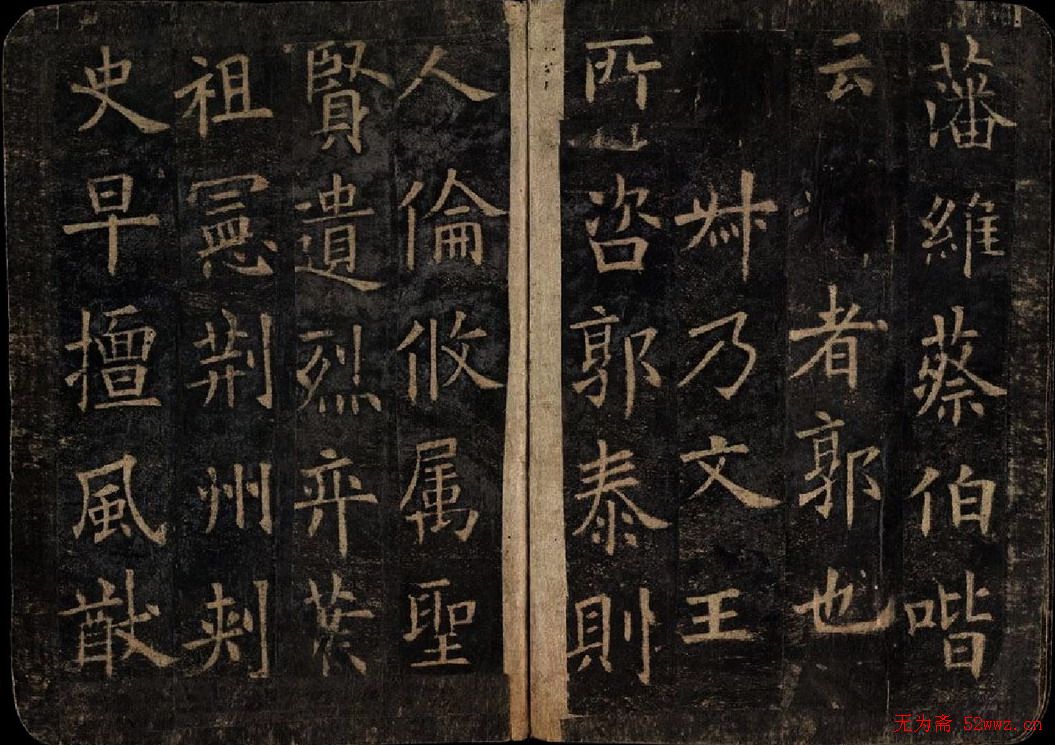 藩維蔡伯喈
云者郭也
叔乃文王
所咨郭泰則
人倫攸属聖
賢遺烈弈葉
祖憲荆州刺
史早擅風猷
无为斋 52wwz.cn